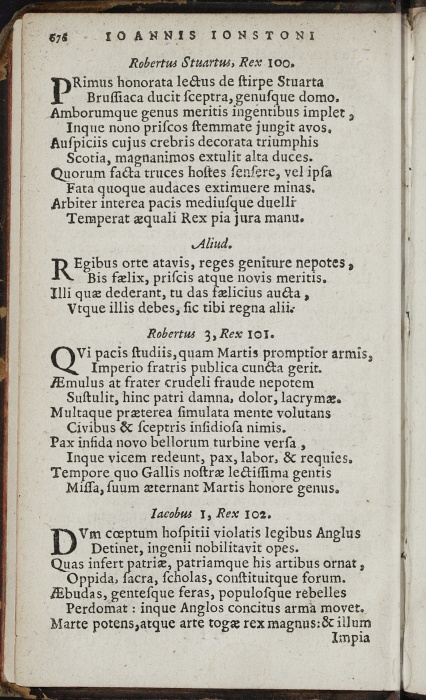 676 IOANNIS IONSTONI
Robertus Stuartus, Rex 100.
PRimus honorata lectus de ſtirpe Stuarta
Bruſſiaca ducit ſceptra, genuſque domo.
Amborumque genus meritis ingentibus implet,
Inque nono priſcos ſtemmate jungit avos.
Auſpiciis cujus crebris decorata triumphis
Scotia, magnanimos extulit alta duces.
Quorum facta truces hoſtes ſenſere, vel ipſa
Fata quoque audaces extimuere minas.
Arbiter interea pacis mediuſque duelli
Temperat æquali Rex pia jura manu.
Aliud.
REgibus orte atavis, reges geniture nepotes,
Bis fælix, priſcis atque novis meritis.
Illi quæ dederant, tu das fælicius aucta,
Vtque illis debes, ſic tibi regna alii.
Robertus 3, Rex 101.
QVi pacis ſtudiis, quam Martis promptior armis,
Imperio fratris publica cuncta gerit.
Æmulus at frater crudeli fraude nepotem
Suſtulit, hinc patri damna, dolor, lacrymæ.
Multaque præterea ſimulata mente volutans
Civibus & ſceptris inſidioſa nimis.
Pax infida novo bellorum turbine verſa,
Inque vicem redeunt, pax, labor, & requies.
Tempore quo Gallis noſtræ lectiſſima gentis
Miſſa, ſuum æternant Martis honore genus.
Iacobus 1, Rex 102.
DVm cœptum hoſpitii violatis legibus Anglus
Detinet, ingenii nobilitavit opes.
Quas infert patriæ, patriamque his artibus ornat,
Oppida, ſacra, ſcholas, conſtituitque forum.
Æbudas, genteſque feras, populoſque rebelles
Perdomat: inque Anglos concitus arma movet.
Marte potens, atque arte togæ rex magnus: & illum
Impia